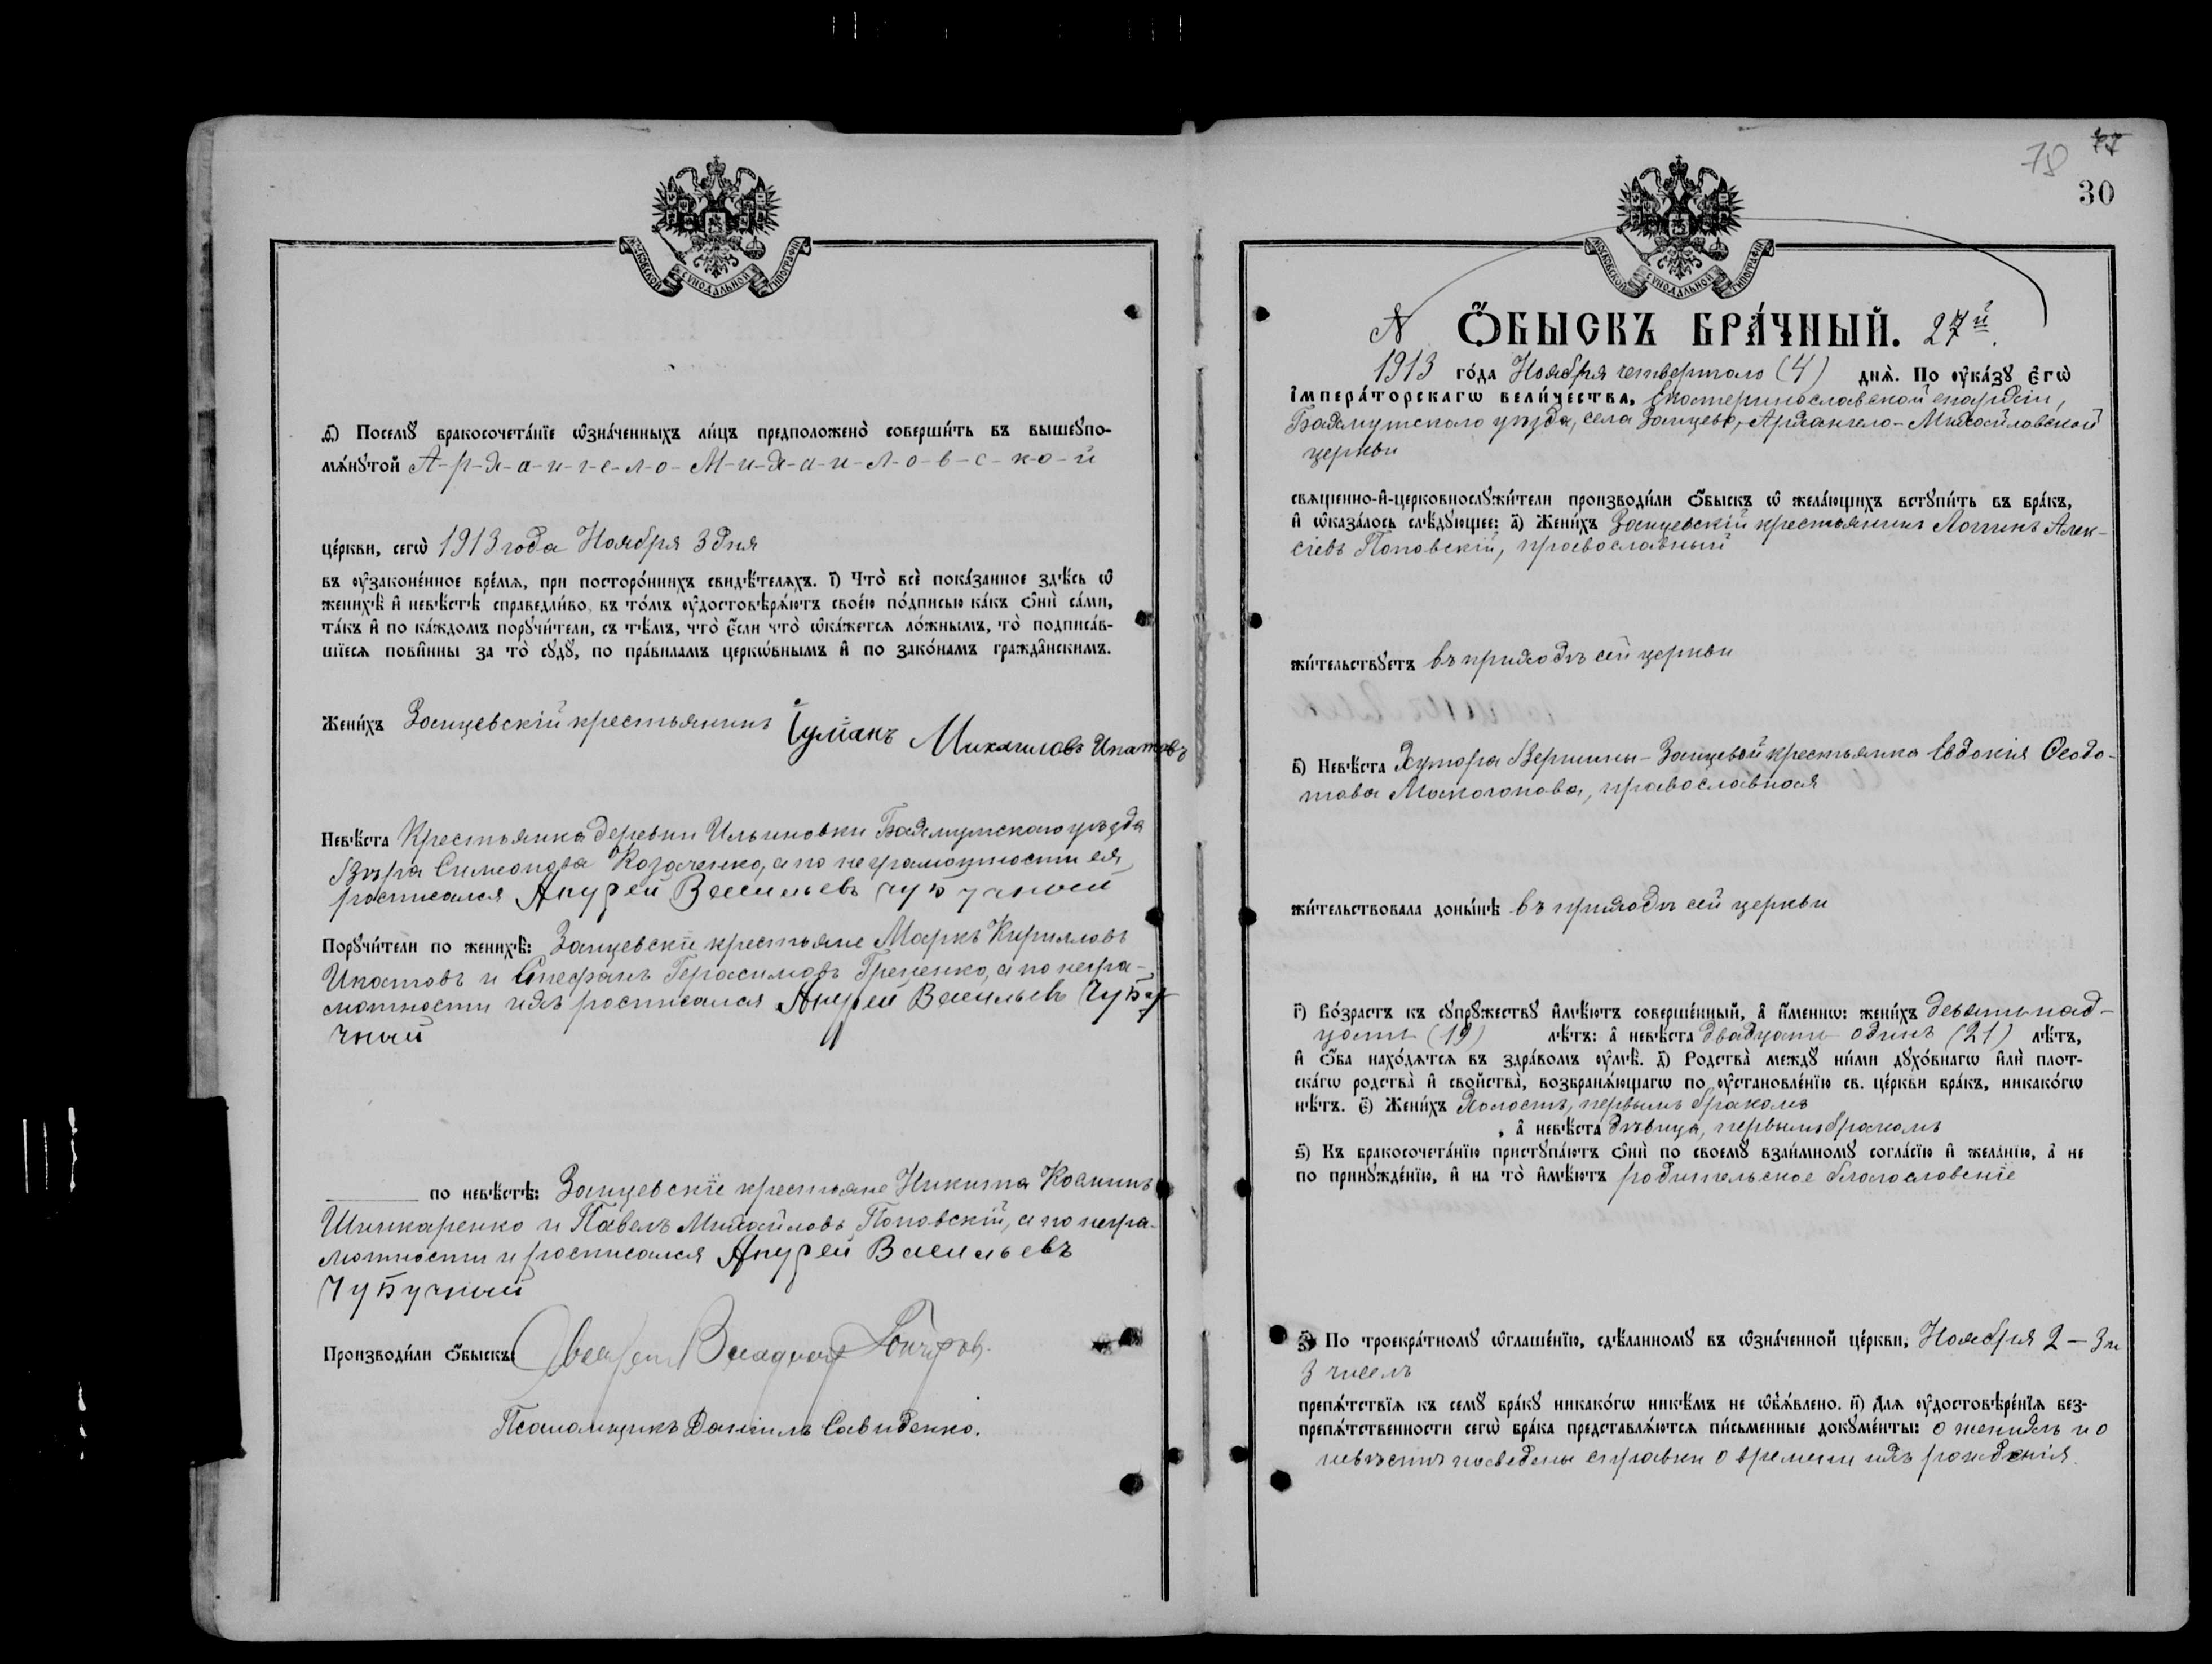 МОСКОВСКОЙ СѴНОДАЛЬНОЙ ТИПОГРАФІИ
ѳ҃) Посемꙋ̀ бракосочета́нїе ѡ҆зна́ченныхъ ли́цъ предположено̀ соверши́ть въ вышеꙋпо-
мѧ́нꙋтой А-р-х-а-н-г-е-л-о-М-и-х-а-и-л-о-в-с-к-о-й
це́ркви, сегѡ̀ 1913 года Ноября 3 дня
въ ᲂу҆зако́ненное вре́мѧ, при посторо́ннихъ свидѣ́телѧхъ. і҃) Что̀ всѐ пока́занное здѣ́сь ѡ҆
женихѣ̀ и҆ невѣ́стѣ справедли́во, въ то́мъ ᲂу҆достовѣрѧ́ютъ свое́ю по́дписью ка́къ ѻ҆нѝ са́ми,
та́къ и҆ по ка́ждомъ порꙋчи́тели, съ тѣ́мъ, что̀ є҆́сли что̀ ѡ҆ка́жетсѧ ло́жнымъ, то̀ подписа́в-
шїесѧ пови́нны за то̀ сꙋдꙋ̀, по пра́виламъ церкѡ́внымъ и҆ по зако́намъ гражда̑нскимъ.
Жени́хъ Зайцевскій крестьянинъ Михаиловъ Ипатовъ
Невѣ́ста Крестьянка деревни Ильиновки Бахмутскаго уѣзда
Вѣра Симеонова Козаченко, а по неграмотности ея
росписался Андрей Васильевъ
Порꙋчи́тели по женихѣ̀: Зайцевскіе крестьяне Маркъ Кирилловъ
Ипатовъ и Стефанъ Герасимовъ Греченко, а по негра-
мотности ихъ росписался Андрей Васильевъ Чубу
чный
по невѣ́стѣ: Зайцевскіе крестьяне Никита
Шинкаренко и Павелъ Михайловъ Поповскій, а по негра-
мотности и росписался Андрей Васильевъ
Чубучный
Производи́ли ѻ҆́быскъ:
Псаломщикъ Даніилъ Савиденко.
78 77
30
МОСКОВСКОЙ СѴНОДАЛЬНОЙ ТИПОГРАФІИ
№ Ѻ҆́БЫСКЪ БРА́ЧНЫЙ. 27й
1913 го́да Ноября четвертаго (4) днѧ̀. По ᲂу҆ка́зꙋ є҆гѡ̀
і҆мпера́торскагѡ вели́чества, Екатеринославской епархіи,
Бахмутскаго уѣзда, села Зайцево, Архангело-Михайловской
церкви
свѧще́нно-и҆-церковнослꙋжи́тели производи́ли ѻ҆́быскъ ѡ҆ жела́ющихъ встꙋпи́ть въ бра́къ,
и҆ ѡ҆каза́лось слѣ́дꙋющее: а҃) Жени́хъ Зайцевскій крестьянинъ Логгинъ Алек-
сіевъ Поповскій, православный
жи́тельствꙋетъ въ приходѣ сей церкви
в҃) Невѣ́ста Хутора Вершины-Зайцевой крестьянка Евдокія Ѳеодо-
това Макогонова, православная
жи́тельствовала доны́нѣ въ приходѣ сей церкви
г҃) Во́зрастъ къ сꙋпрꙋ́жествꙋ и҆мѣ́ютъ соверше́нный, а҆ и҆́меннѡ: жени́хъ девятнад-
цати (19) лѣ́тъ: а҆ невѣ́ста двадцати одинъ (21) лѣ́тъ,
и҆ ѻ҆́ба нахо́дѧтсѧ въ здра́вомъ ᲂу҆мѣ̀. д҃) Родства̀ междꙋ̀ ни́ми дꙋхо́внагѡ и҆лѝ плот-
ска́гѡ родства̀ и҆ свойства̀, возбранѧ́ющагѡ по ᲂу҆становле́нїю св. це́ркви бра́къ, никако́гѡ
нѣ́тъ. є҃) Жени́хъ Холостъ, первымъ бракомъ
, а҆ невѣ́ста дѣвица, первымъ бракомъ
ѕ҃) Къ бракосочета́нїю пристꙋпа́ютъ ѻ҆нѝ по своемꙋ̀ взаи́мномꙋ согла́сїю и҆ жела́нїю, а҆ не
по принꙋжде́нїю, и҆ на то̀ и҆мѣ́ютъ родительское благословеніе
з҃) По троекра́тномꙋ ѡ҆глаше́нїю, сдѣ́ланномꙋ въ ѡ҆зна́ченной це́ркви, Ноября 2 — 3 и
3 чиселъ
препѧ́тствїѧ къ семꙋ̀ бра́кꙋ никако́гѡ никѣ́мъ не ѡ҆бъѧ́влено. и҃) Длѧ ᲂу҆достовѣре́нїѧ без-
препѧ́тственности сегѡ̀ бра́ка представлѧ́ютсѧ пи́сьменные докꙋме́нты: о женихѣ и о
невѣстѣ наведены справки о времени ихъ рожденія.